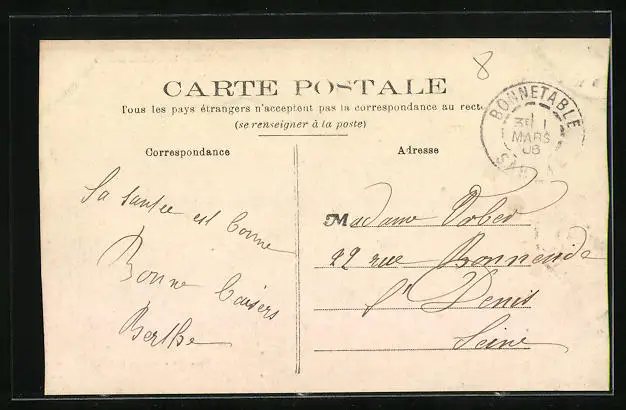 8
CARTE POSTALE
Tous les pays étrangers n'acceptent pas la correspondance au recto
(se renseigner à la poste)
BONNETABLE
3E 1
MARS
08
Correspondance
Adresse
La santée est bonne
Bonne baisers
Berthe
Madame
22 rue
St Denis
Seine